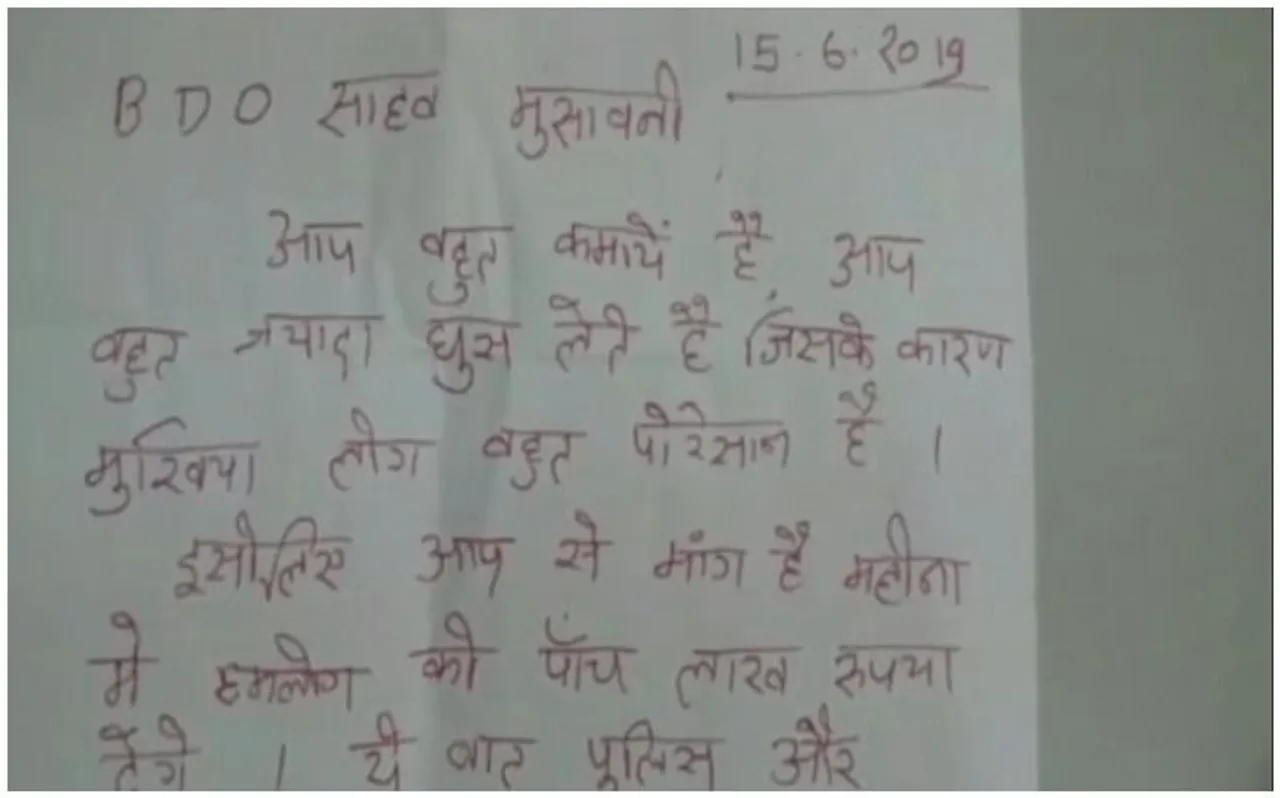 15.6.2019
BDO साहब मुसाबनी
आप बहुत कमायें है, आप
बहुत ज्यादा घुस लेते है जिसके कारण
मुखिया लोग बहुत परेसान है ।
इसीलिए आप से मांग है महीना
मे हमलोग को पाँच लाख रुपया
देगे । ये बात पुलिस और